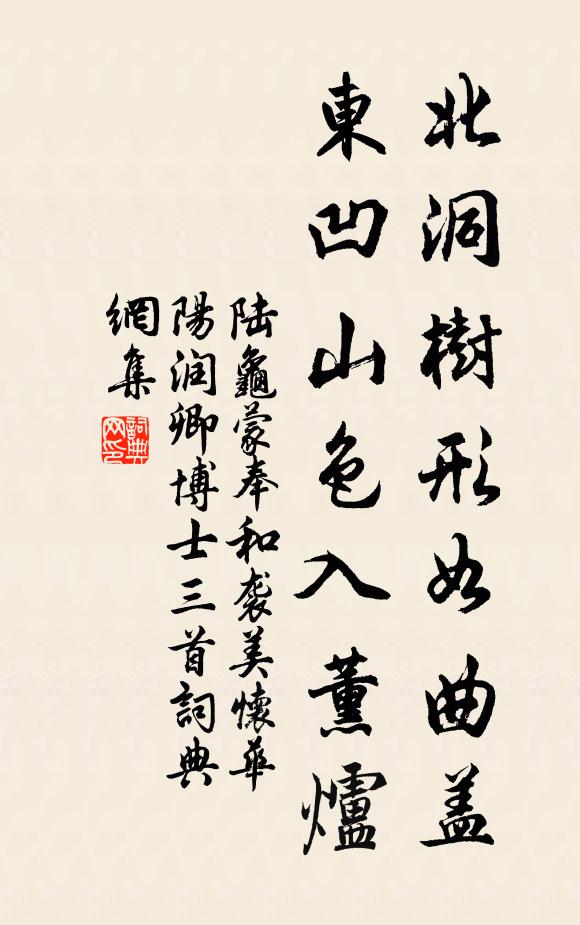 北洞樹形如曲盖
東凹山色入薰爐
陆龜蒙奉和袭美懷華
陽润卿博士三首詞典
網集
詞典
网印